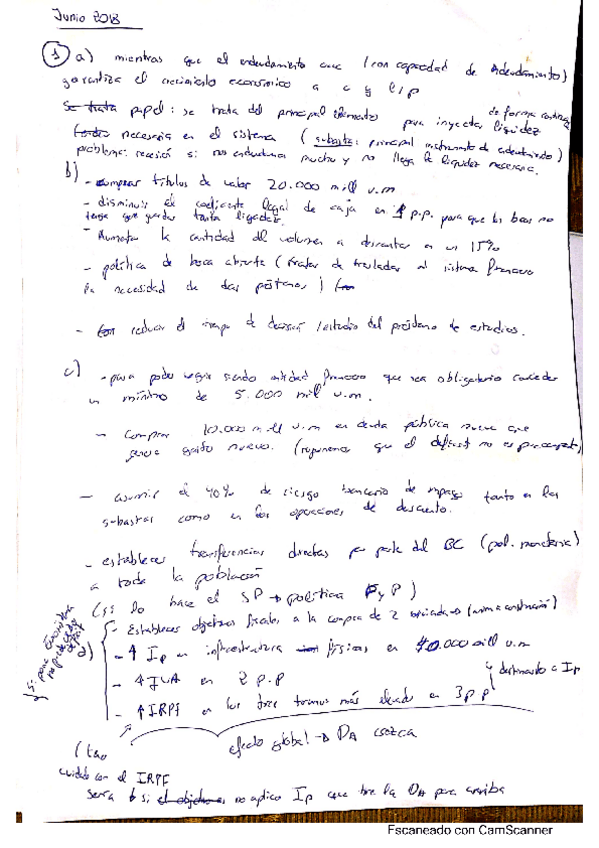 Junio 2018
① a) mientras que el endeudamiento (con capacidad de endeudamiento)
garantiza el crecimiento económico a c y l/p
Se trata papel: se trata del principal elemento para inyectar liquidez de forma
necesaria en el sistema (subasta: principal instrumento de endeudamiento)
problema: recesión si no endeudarse mucho y no llega la liquidez necesaria.
b) - comprar títulos de valor 20.000 mill u.m
- disminuir el coeficiente legal de caja en 1 p.p. para que los bcos no
tenga que guardar tanta liquidez.
- Aumentar la cantidad del volumen a descontar en un 15%
- política de boca abierta (tratar de trasladar al sistema financiero
la necesidad de dar préstamos)
- reducir el tiempo de decisión / estudio del préstamo de estudios.
c) - para poder seguir siendo entidad financiera que sea obligatorio conceder
un mínimo de 5.000 mill u.m.
- comprar 10.000 mill u.m en deuda pública nueva que
genere gasto nuevo. (suponemos que el déficit no es preocupante)
- asumir el 40% de riesgo bancario de impago tanto en las
subastas como en las operaciones de descuento.
- establecer transferencias directas por parte del BC (pol. monetaria)
a toda la población
(si lo hace el SP → política F y P)
d) - Establecer objetivos fiscales a la compra de 2 viviendas → (anima construcción)
- ↑ Ip en infraestructura físicas en 40.000 mill u.m
- ↑ IVA en 2 p.p
↳ destinado a Ip
- ↑ IRPF en los tres tramos más elevado en 3 p.p
efecto global → DA crezca
cuidado con el IRPF
sería si el objetivo no aplico Ip que tire la DA para arriba
Escaneado con CamScanner